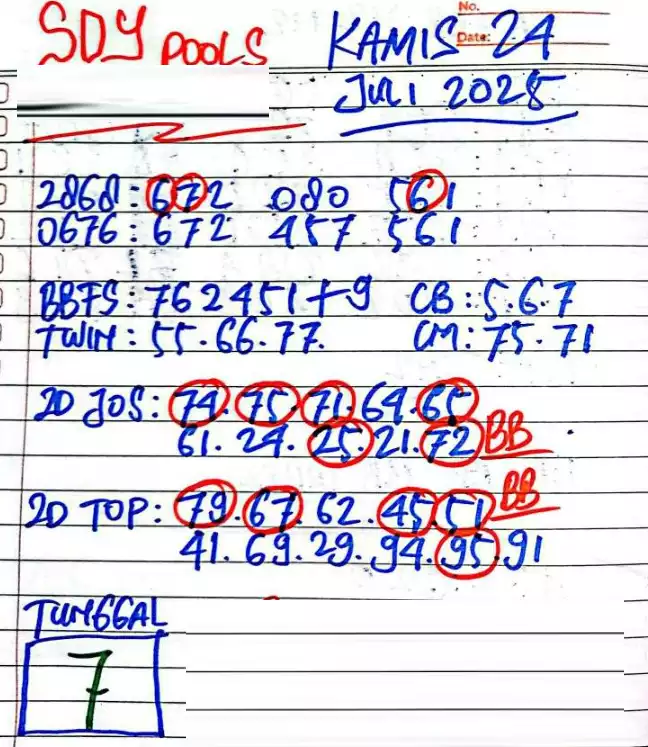 SDY POOLS KAMIS 24
No.
Date:
JULI 2025
2868 : 672 080 561
0676 : 672 457 561
BBFS : 762451+9 CB : 5.6.7
TWIN : 55.66.77. CM : 75.71
2D JOS : 74.75.71.64.65
61.24.25.21.72 BB
2D TOP : 79.67.62.45.51 BB
41.69.29.94.95.91
TUNGGAL
7